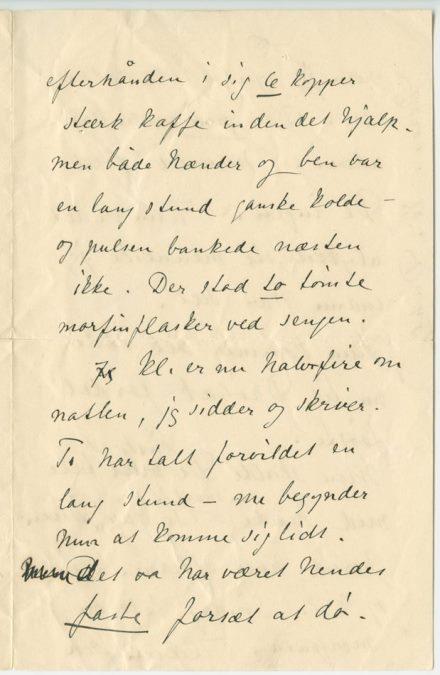 efterhånden i sig 6 kopper
stærk kaffe inden det hjalp.
men både hænder og ben var
en lang stund ganske kolde –
og pulsen bankede næsten
ikke. Der stod to tömte
morfinflasker ved sengen.
Kl. er nu halvfire om
natten, jeg sidder og skriver.
To har talt forvildet en
lang stund – nu begynder
hun at komme sig lidt.
Det var har været hendes
faste forsæt at dö.